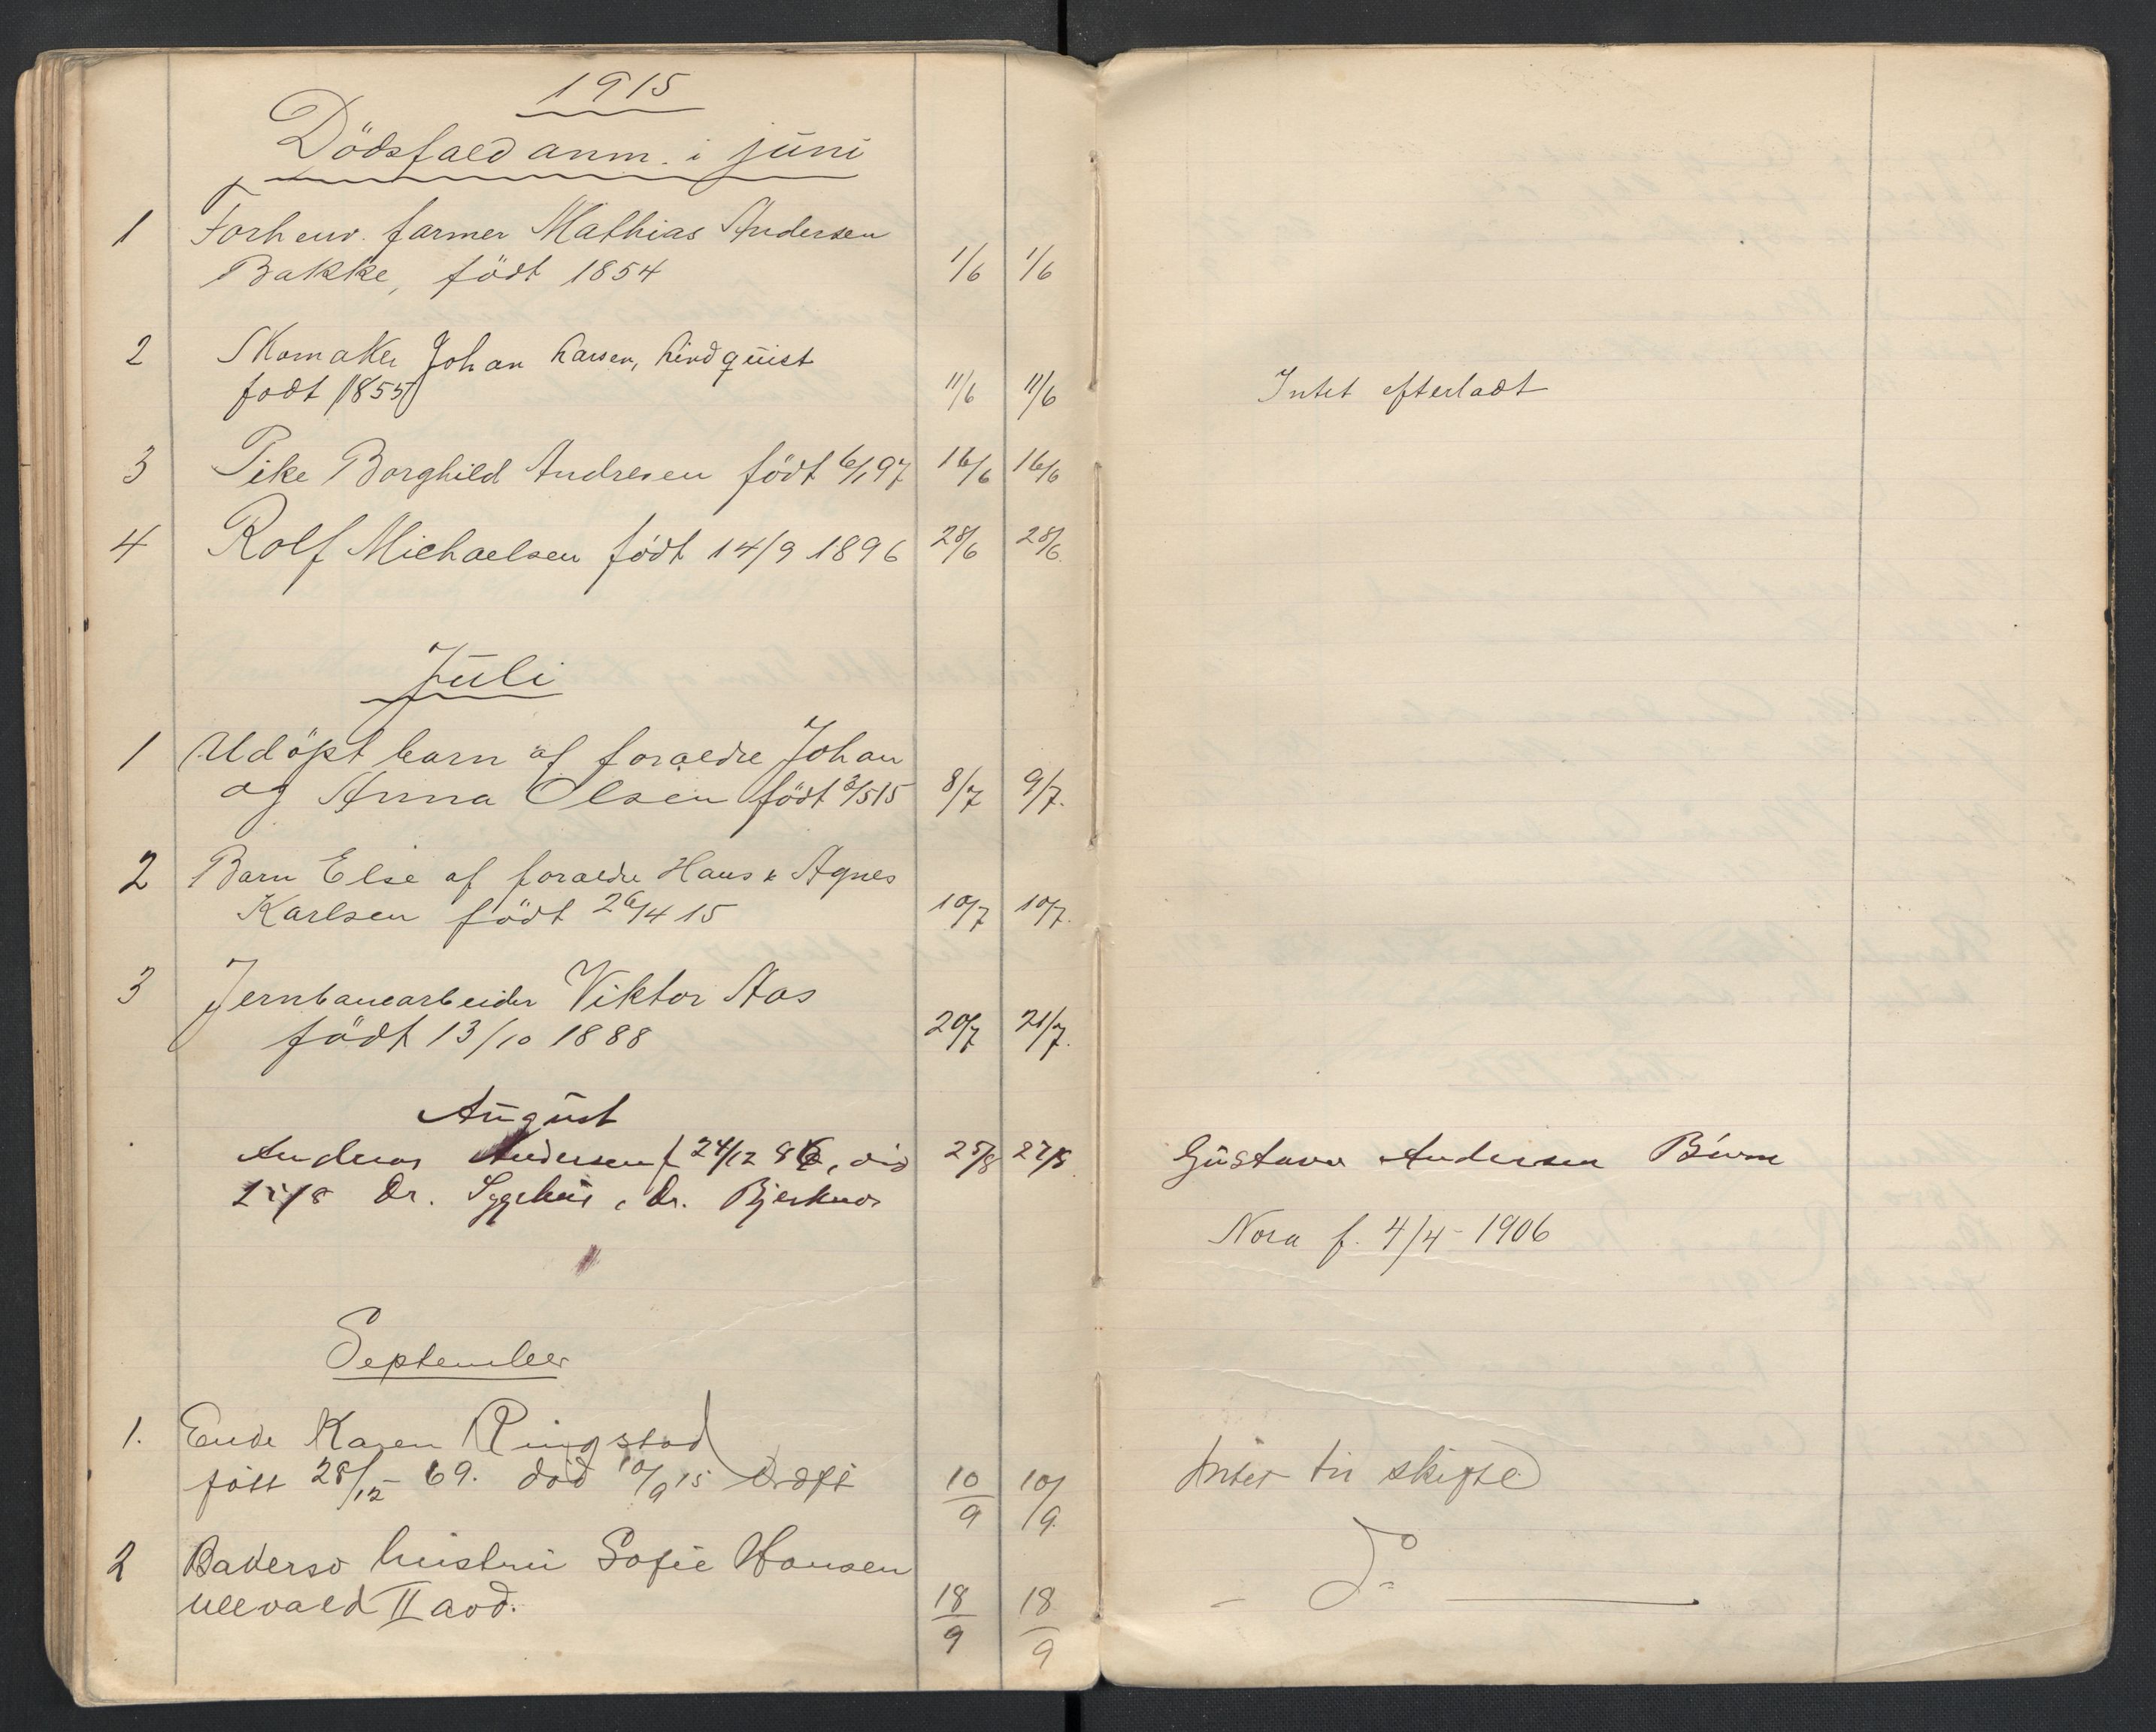 1915
Dödsfald anm. i juni
1 Forhenv. farmer Mathias Andersen
Bakke, födt 1854 1/6 1/6
2 Skomaker Johan Larsen, Lindquist
fodt 1855 11/6 11/6 Intet efterladt
3 Pike Borghild Andresen födt 6/1 97 16/6 16/6
4 Rolf Michaelsen födt 14/9 1896 28/6 28/6
Juli
1 Udöpt barn af foraedre Johan
og Anna Olsen födt 3/5 15 8/7 9/7.
2 Barn Else af foraedre Hans & Agnes
Karlsen födt 26/4 15 10/7 10/7.
3 Jernbanearbeider Viktor Aas
födt 13/10 1888 20/7 21/7.
August
Andreas Andersen f 24/12 86, död 25/8 27/8 Gustava Andersen
25/8 Dr. Sygehus, Dr. Bjerknes
Nora f. 4/4 - 1906
September
1. Enke Karen Ringstad
fött 28/12 - 69. död 10/9 15 10/9 10/9 Intet til skifte
2 Bakersv hustru Sofie Hansen
Ullevald II avd. 18/9 18/9 - Do -